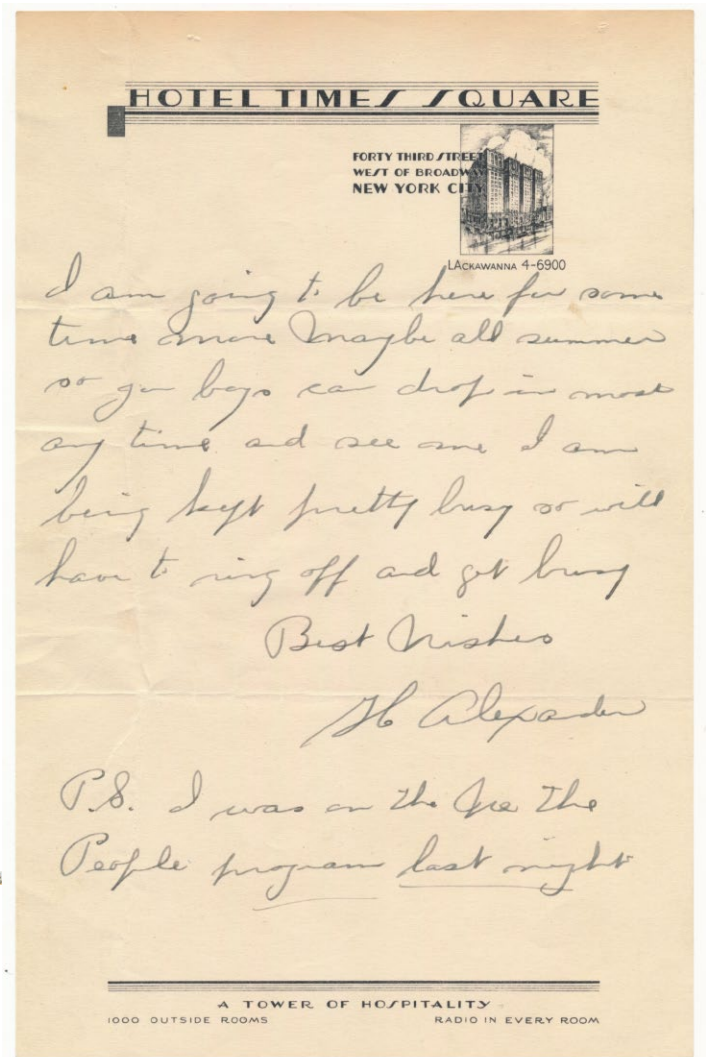 HOTEL TIMES SQUARE
FORTY THIRD STREET
WEST OF BROADWAY
NEW YORK CITY
LACKAWANNA 4-6900
I am going to be here for some
time more Maybe all summer
so you boys can drop in most
any time and see me I am
being kept pretty busy so will
have to ring off and get busy
Best Wishes
Alexander
P.S. I was on the We The
People program last night
A TOWER OF HOSPITALITY
1000 OUTSIDE ROOMS
RADIO IN EVERY ROOM